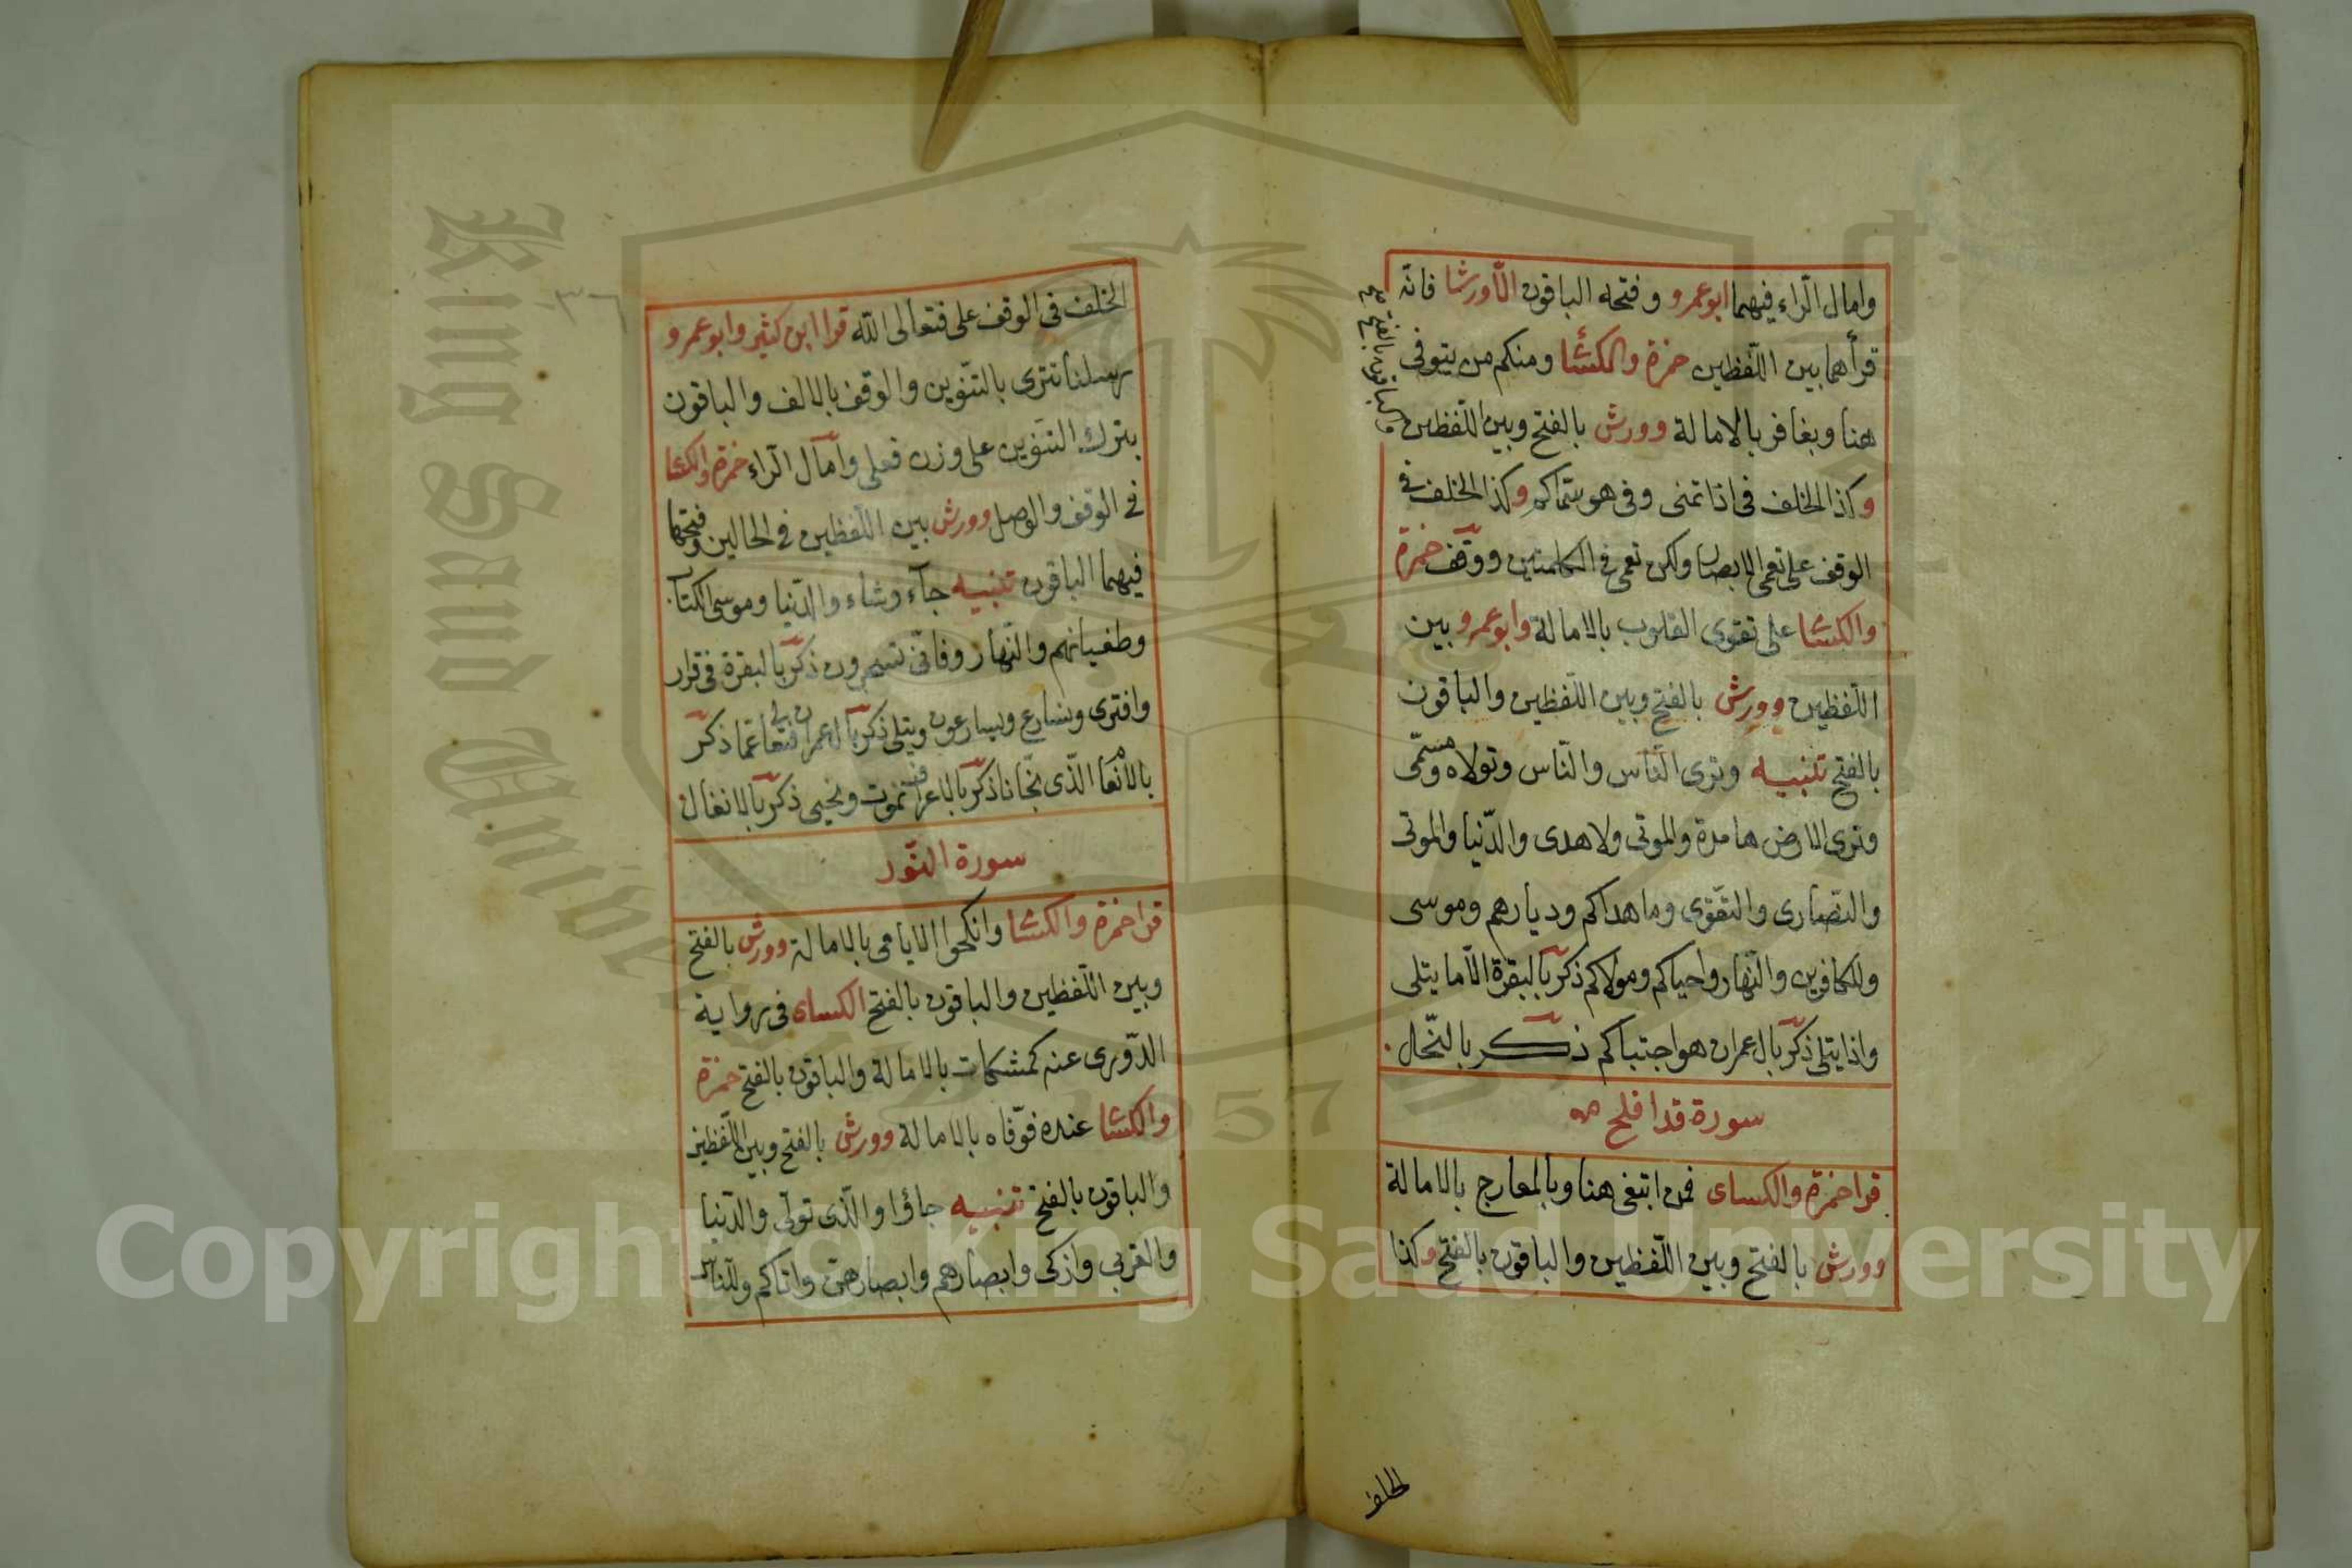 وامال الرّاء فيهما ابوعمرو وفتحه الباقون الّا ورشا فانّه
قرأهما بين اللّفظين حمزة والكسٔا ومنكم من يتوفى
هنا وبغافر بالامالة وورش بالفتح وبين اللّفظين
والباقون بالفتح صح
وكذا الخلف فى اذا تمنى وفى هو سمّاكم وكذا الخلف فى
الوقف على تعمى الابصار ولكن تعمى فى الكلمتين ووقف حمزة
والكسٔا على تقوى القلوب بالامالة وابوعمرو بين
اللّفظين وورش بالفتح وبين اللّفظين والباقون
بالفتح تنبيه وترى النّاس والنّاس وتولاه ومسمّى
وترى الارض هامدة والموتى ولا هدى والدّنيا والموتى
والنّصارى والتّقوى وما هداكم وديارهم وموسى
وللكافرين والنّهار واحياكم ومولاكم ذكر بالبقرة الّا ما يتلى
واذا يتلى ذكر بال عمران هو اجتباكم ذكر بالنّحل
سورة قد افلح
قرا حمزة والكساى فمن ابتغى هنا وبالمعارج بالامالة
وورش بالفتح وبين اللّفظين والباقون بالفتح وكذا
الخلف
٣٦
الخلف فى الوقف على فتعالى اللّه قرا ابن كثير وابوعمرو
رسلنا تترى بالتّنوين والوقف بالالف والباقون
بترك التنوين على وزن فعلى وامال الرّاء حمزة والكسٔا
فى الوقف والوصل وورش بين اللّفظين فى الحالين وفتحها
فيهما الباقون تنبيه جآء وشاء والدّنيا وموسى الكتاب
وطغيانهم والنّهار وفانّى تسحرون ذكر بالبقرة فى قرار
وافترى ونسارع ويسارعون ويتلى ذكر بال عمران فتعالى عمّا ذكر
بالانعام الّذى نجّانا ذكر بالاعراف نموت ونحيى ذكر بالانفال
سورة النّور
قرا حمزة والكسٔا وانكحوا الايامى بالامالة وورش بالفتح
وبين اللّفظين والباقون بالفتح الكساى فى رواية
الدّورى عنه كمشكات بالامالة والباقون بالفتح حمزة
والكسٔا عنده فوّفاه بالامالة وورش بالفتح وبين اللّفظين
والباقون بالفتح تنبيه جاؤا والّذى تولّى والدّنيا
والقربى وازكى وابصارهم وابصارهنّ واتاكم وللنّاس
King Saud University
1957
Copyright © King Saud University